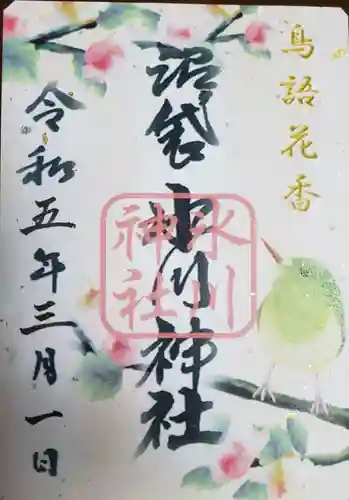 鳥語花香
沼袋氷川神社
氷川神社
令和五年三月一日